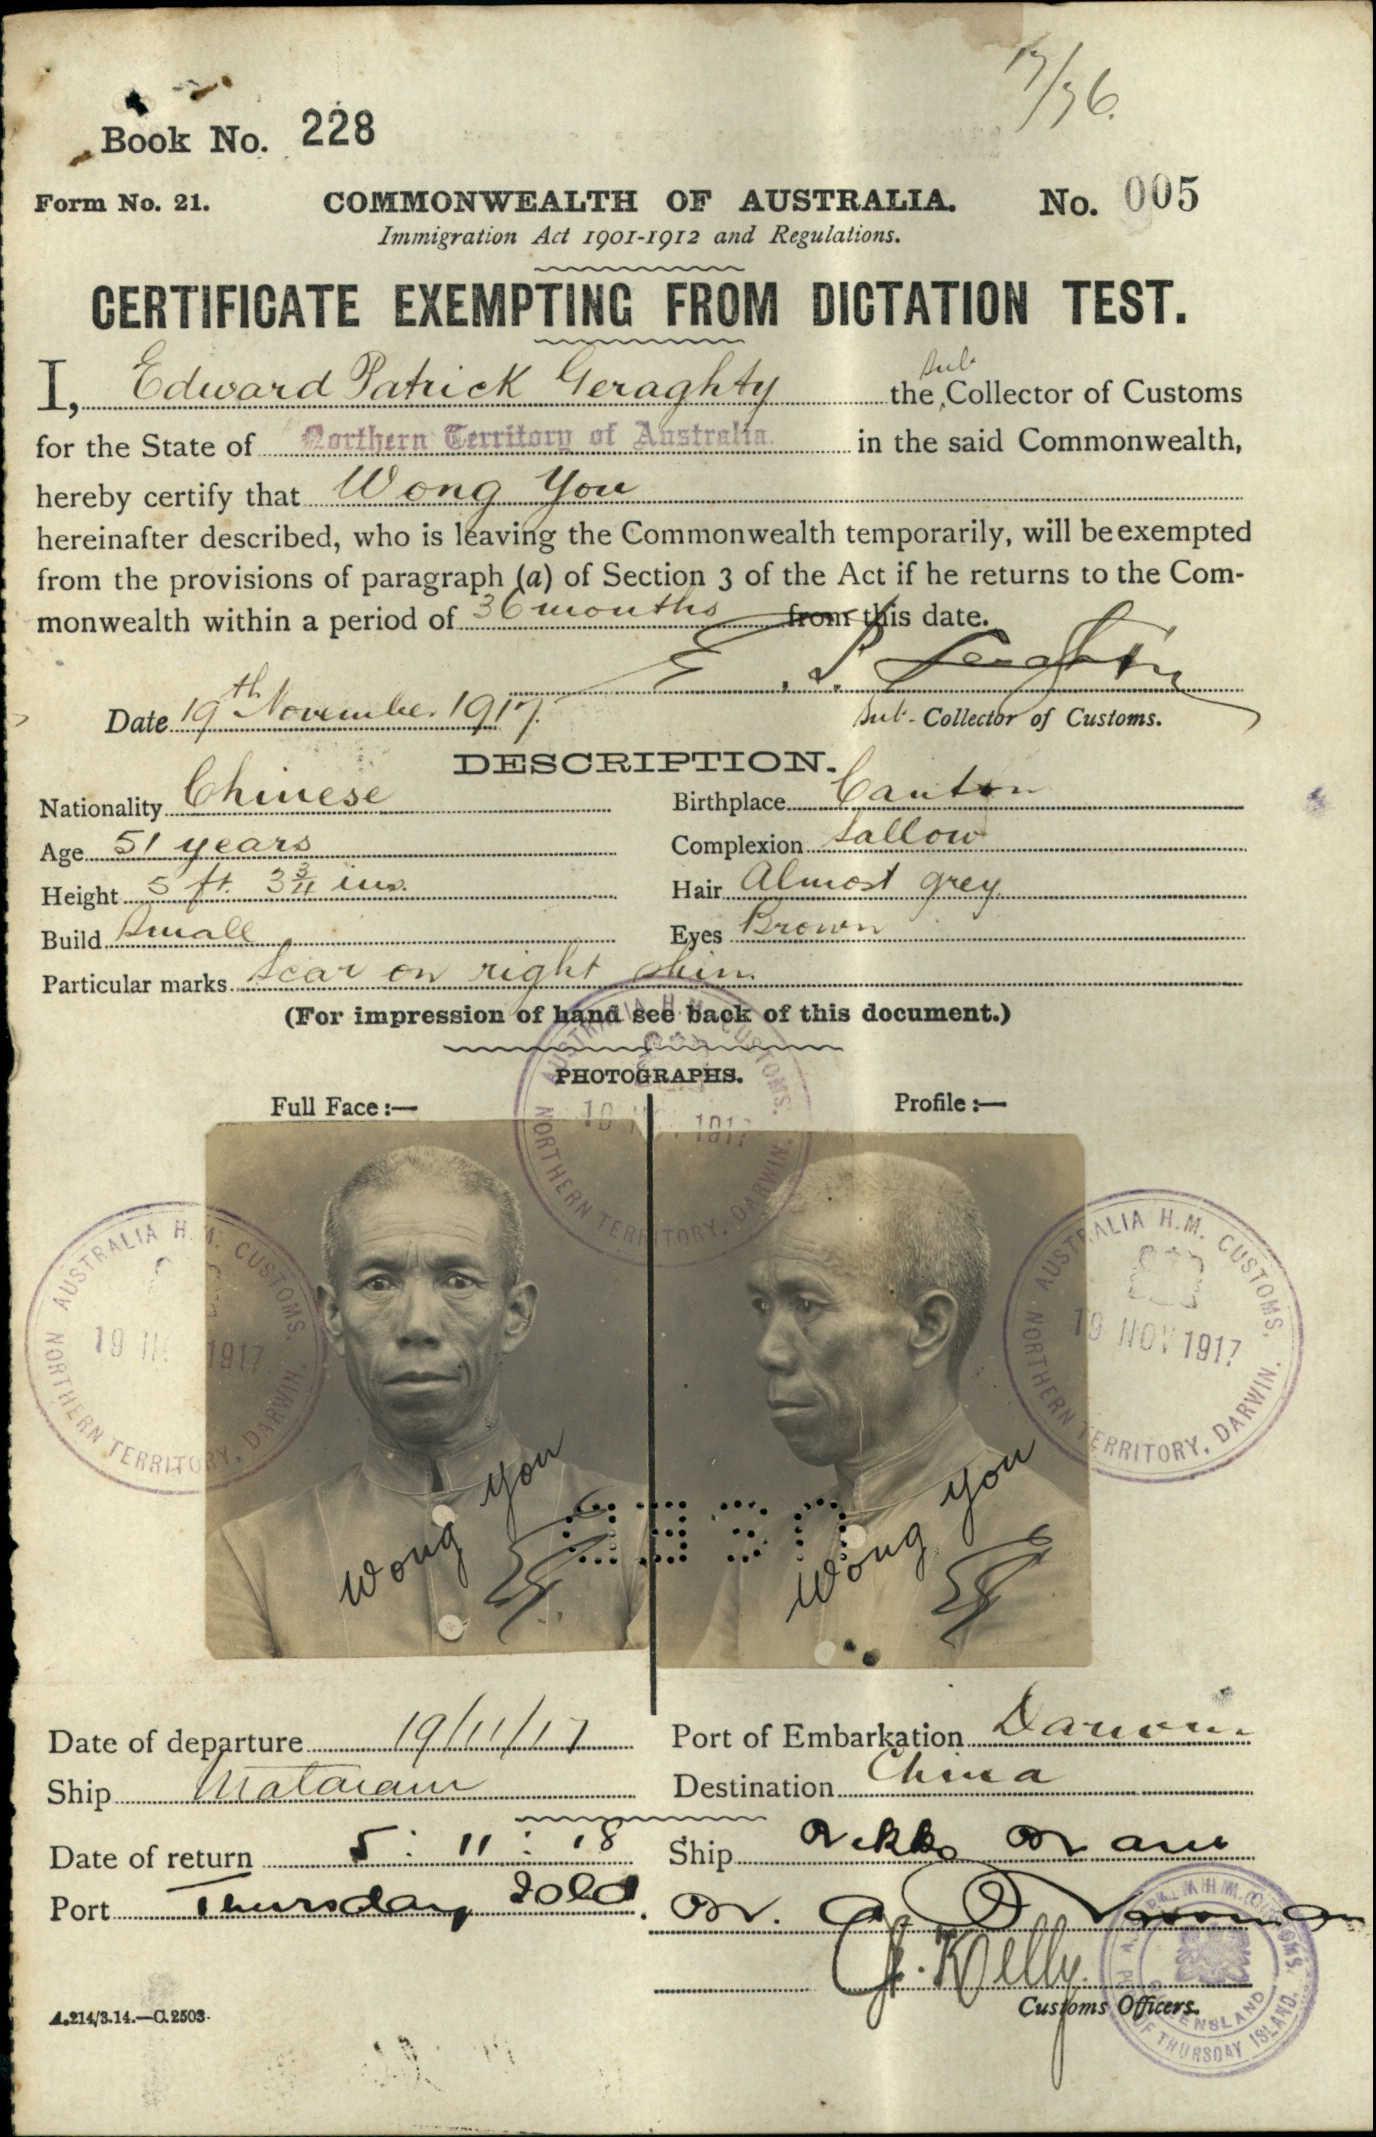 17/36.
Book No. 228
Form No. 21. COMMONWEALTH OF AUSTRALIA. No. 005
Immigration Act 1901-1912 and Regulations.
CERTIFICATE EXEMPTING FROM DICTATION TEST.
I, Edward Patrick Geraghty the Sub Collector of Customs
for the State of Northern Territory of Australia. in the said Commonwealth,
hereby certify that Wong You
hereinafter described, who is leaving the Commonwealth temporarily, will be exempted
from the provisions of paragraph (a) of Section 3 of the Act if he returns to the Com-
monwealth within a period of 36 months from this date.
E. P. Geraghty
Date 19th November 1917. Sub- Collector of Customs.
DESCRIPTION.
Nationality Chinese Birthplace Canton
Age 51 years Complexion Sallow
Height 5 ft. 3 3/4 ins. Hair Almost grey
Build Small Eyes Brown
Particular marks Scar on right shin.
(For impression of hand see back of this document.)
PHOTOGRAPHS.
Full Face:— Profile:—
AUSTRALIA H.M. CUSTOMS. NORTHERN TERRITORY, DARWIN.
19 NOV 1917
AUSTRALIA H.M. CUSTOMS. NORTHERN TERRITORY, DARWIN.
19 1917
AUSTRALIA H.M. CUSTOMS. NORTHERN TERRITORY, DARWIN.
19 NOV 1917
Wong You
Wong You
Date of departure 19/11/17 Port of Embarkation Darwin
Ship Mataram Destination China
Date of return 5 : 11 : 18 Ship Nikko Maru
Port Thursday Isld.
J. Kelly.
Customs Officers.
H.M. CUSTOMS. QUEENSLAND PORT OF THURSDAY ISLAND.
A.214/3.14.—C.2503.